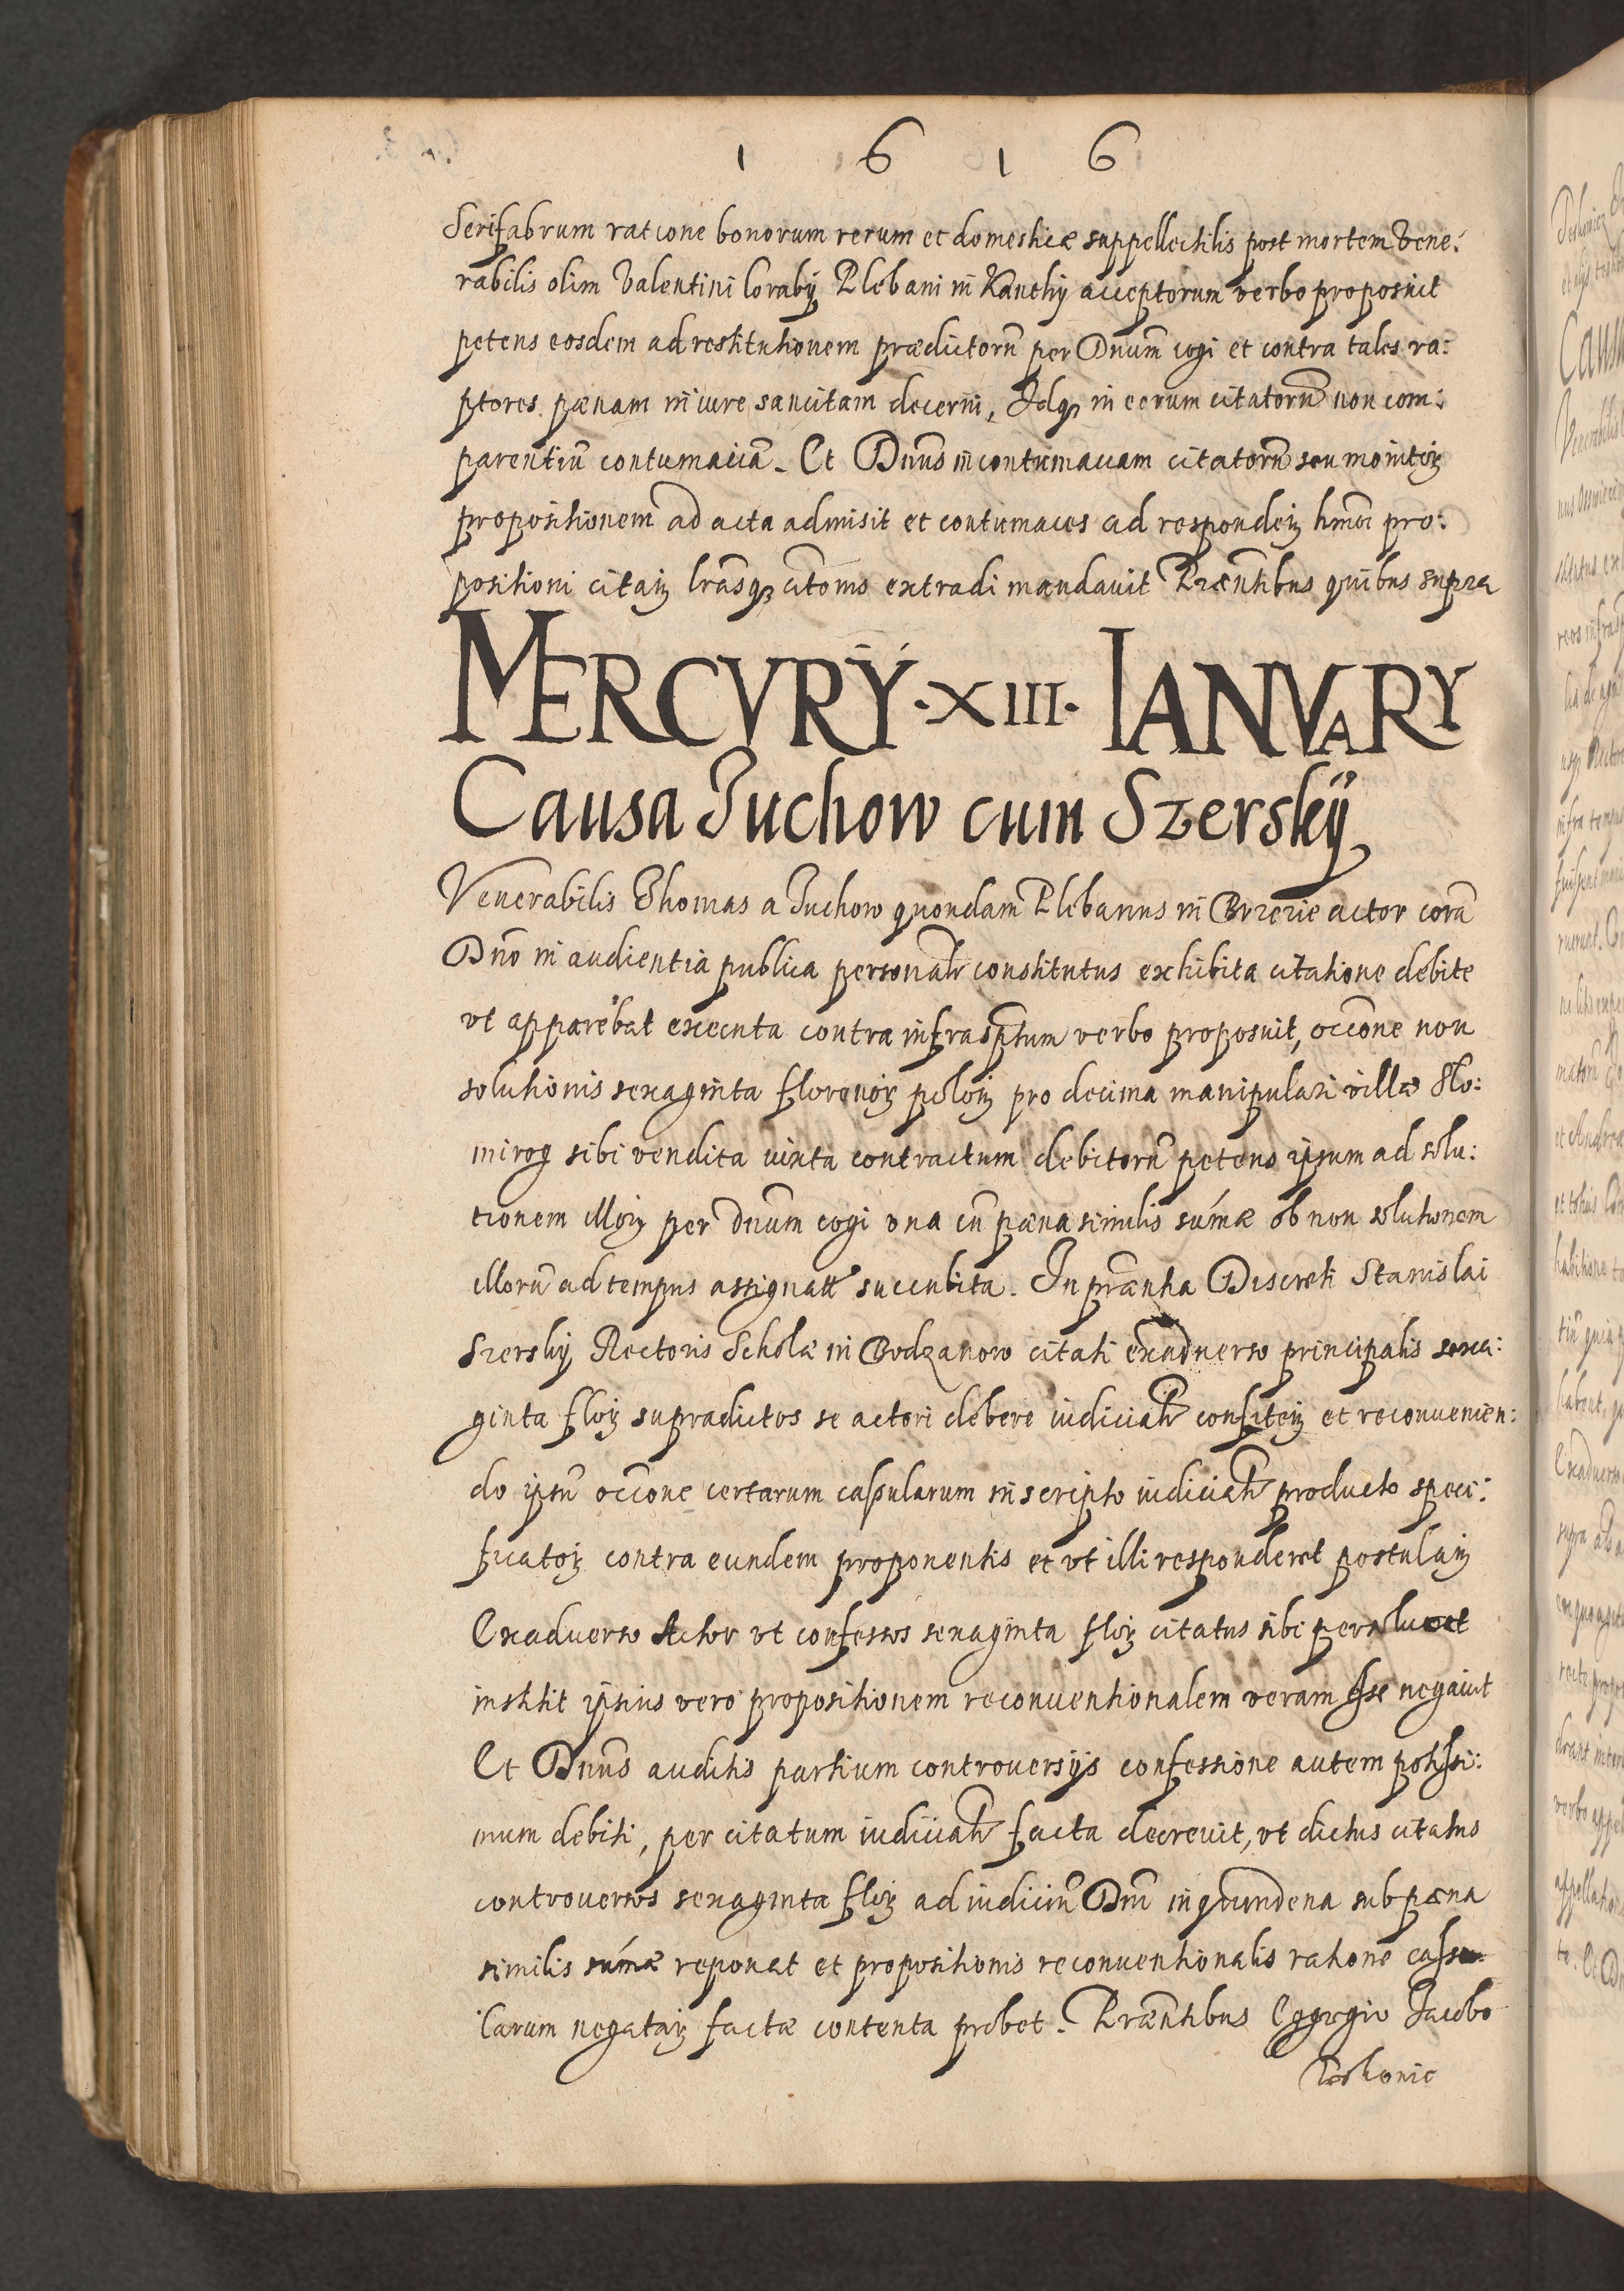 1 6 1 6
Serifabrum ratione bonorum rerum et domesticæ suppellectilis post mortem Vene:
rabilis olim Valentini Corabÿ Plebani in Kanthÿ acceptorum verbo proposuit
petens eosdem ad restitutionem prædictorũ per Dnũm cogi et contra tales ra:
ptores pænam in iure sancitam decerni, Idqꝫ in eorum citatorũ non com:
parentiũ contumaciã. Et Dnũs in contumaciam citatorũ seu monitoꝝ
propositionem ad acta admisit et contumaces ad respondeꝝ hmõi pro:
positioni citaꝝ lrãsqꝫ citõnis extradi mandavit Præntibus quibus supra
MERCVRŸ · XIII · IANVARY
Causa Tuchow cum Szerskÿ
Venerabilis Thomas a Tuchow quondam Plebanus in Brzezie actor corã
Dnõ in audientia publica personalr constitutus exhibita citatione debite
vt apparebat executa contra infrasptum verbo proposuit, occõne non
solutionis sexaginta florenoꝝ poloꝝ pro decima manipulari villæ Slo:
mirog sibi vendita iuxta contractum debitorũ petens ipsum ad solu:
tionem illoꝝ per Dnũm cogi vna cũ pæna similis sum̃æ ob non solutionem
illorũ ad tempus assignatt succubita. In præntia Discreti Stanislai
Szerskÿ Rectoris Scholæ in Bodzanow citati exadverso principalis sexa:
ginta floꝝ supradictos se actori debere iudicialr confiteꝝ et reconuenien:
do ipsũ occõne certarum capsularum in scripto iudicialr producto speci:
ficatoꝝ contra eundem proponentis et vt illi responderet postulaꝝ
Exaduerso Actor vt confessos sexaginta floꝝ citatus sibi persoluat
institit ipsius vero propositionem reconuentionalem veram esse negauit
Et Dnũs auditis partium controuersÿs confessione autem potissi:
mum debiti, per citatum iudicialr facta decreuit, vt dictus citatus
controuersos sexaginta floꝝ ad iudiciũ Dnĩ in quindena sub pæna
similis sum̃æ reponat et propositionis reconuentionalis ratione capsu
larum negataꝝ factæ contenta probet. Præntibus Egregio Jacobo